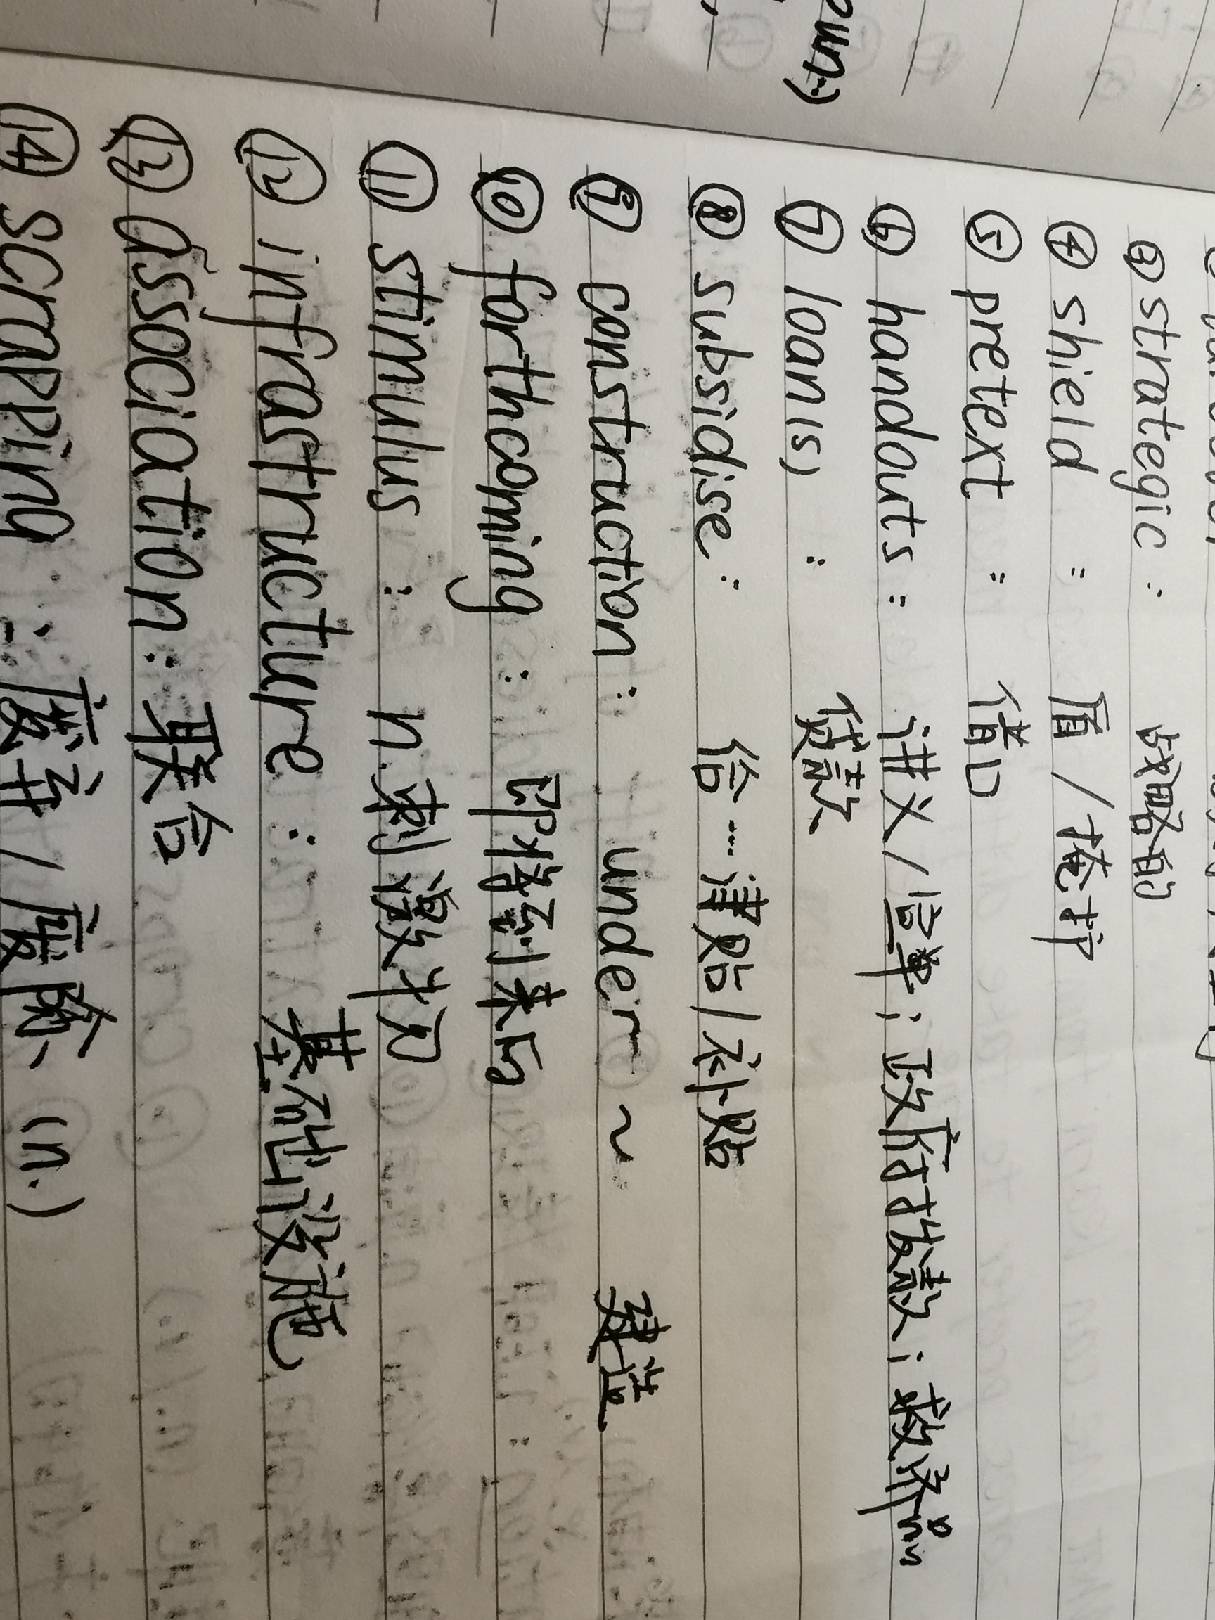 own)
③ strategic : 战略的
④ shield : 盾 / 掩护
⑤ pretext : 借口
⑥ handouts : 讲义 / 传单 ; 政府拨款 ; 救济品
⑦ loan(s) : 贷款
⑧ subsidise : 给…津贴 / 补贴
⑨ construction : under ~ 建造
⑩ forthcoming : 即将到来的
⑪ stimulus : n. 刺激物
⑫ infrastructure : 基础设施
⑬ association : 联合
⑭ scrapping : 废弃 / 废除 (n.)